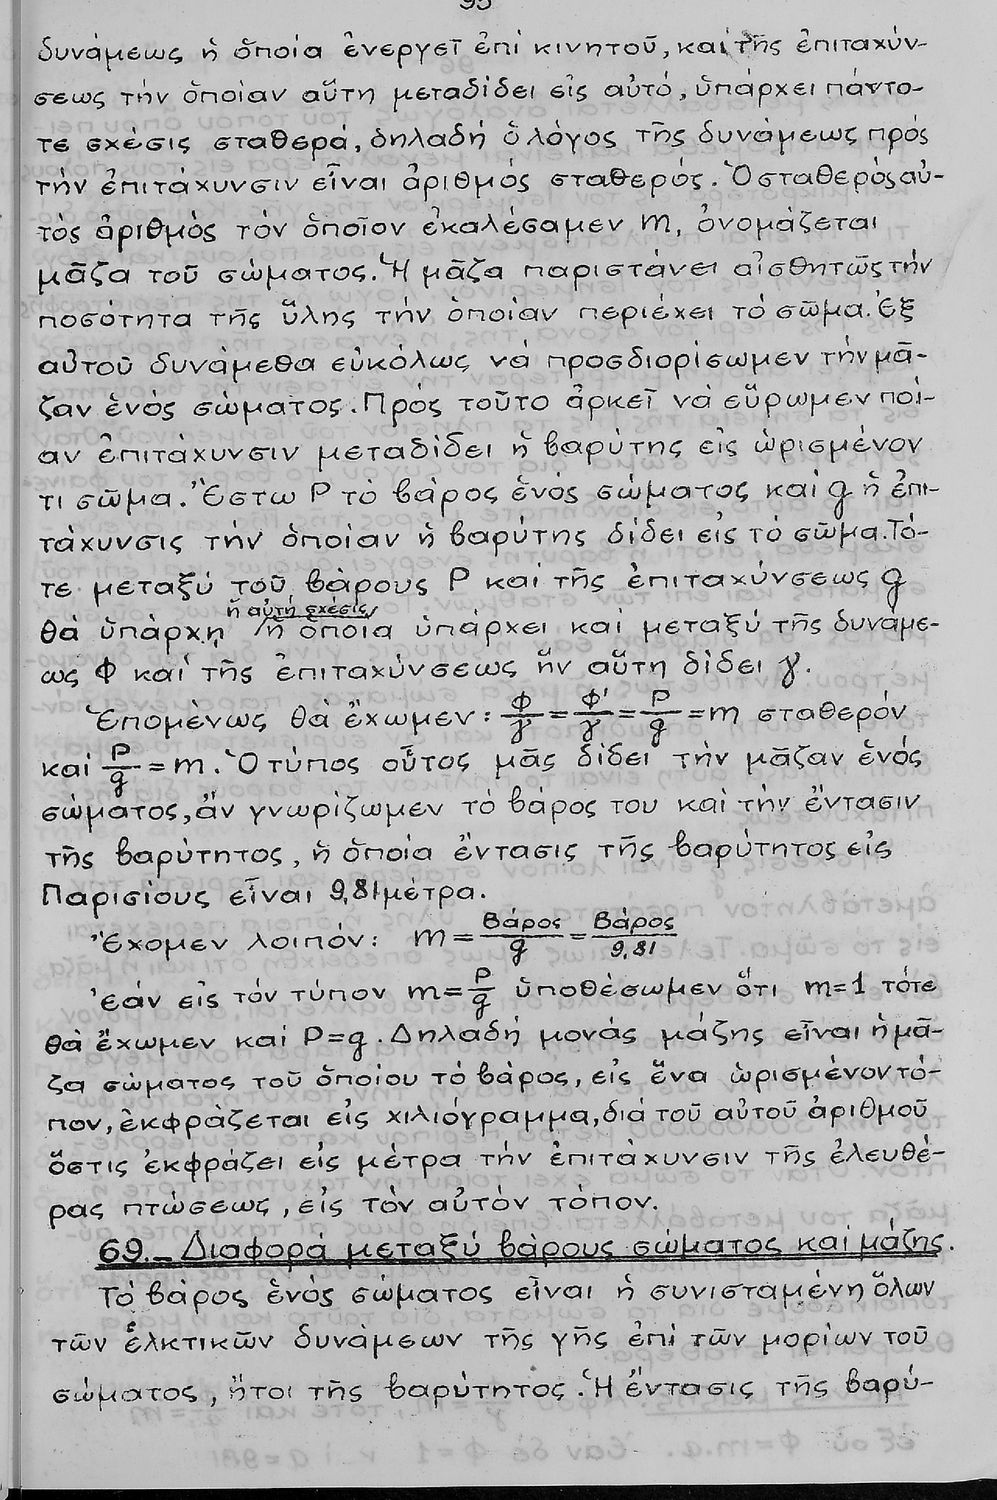 95
δυνάμεως ἡ ὁποία ἐνεργεῖ ἐπί κινητοῦ, καί τῆς ἐπιταχύν-
σεως τήν ὁποίαν αὕτη μεταδίδει εἰς αὐτό, ὑπάρχει πάντο-
τε σχέσις σταθερά, δηλαδή ὁ λόγος τῆς δυνάμεως πρός
τήν ἐπιτάχυνσιν εἶναι ἀριθμός σταθερός. Ὁ σταθερός αὐ-
τός ἀριθμός τόν ὁποῖον ἐκαλέσαμεν m, ὀνομάζεται
μᾶζα τοῦ σώματος. Ἡ μᾶζα παριστάνει αἰσθητῶς τήν
ποσότητα τῆς ὕλης τήν ὁποίαν περιέχει τό σῶμα. Ἐξ
αὐτοῦ δυνάμεθα εὐκόλως νά προσδιορίσωμεν τήν μᾶ-
ζαν ἑνός σώματος. Πρός τοῦτο ἀρκεῖ νά εὕρωμεν ποί-
αν ἐπιτάχυνσιν μεταδίδει ἡ βαρύτης εἰς ὡρισμένον
τι σῶμα. Ἔστω P τό βάρος ἑνός σώματος καί g ἡ ἐπι-
τάχυνσις τήν ὁποίαν ἡ βαρύτης δίδει εἰς τό σῶμα. Τό-
τε μεταξύ τοῦ βάρους P καί τῆς ἐπιταχύνσεως g
ἡ αὐτή σχέσις
θά ὑπάρχῃ /ἡ ὁποια ὑπάρχει καί μεταξύ τῆς δυνάμε-
ως Φ καί τῆς ἐπιταχύνσεως ἥν αὕτη δίδει γ.
Ἑπομένως θά ἔχωμεν: Φ/γ = Φ'/γ = P/g = m σταθερόν
καί P/g = m. Ὁ τύπος οὗτος μᾶς δίδει τήν μᾶζαν ἑνός
σώματος, ἄν γνωρίζωμεν τό βάρος του καί τήν ἔντασιν
τῆς βαρύτητος, ἡ ὁποία ἔντασις τῆς βαρύτητος εἰς
Παρισίους εἶναι 9,81 μέτρα.
Ἔχομεν λοιπόν: m = Βάρος/g = Βάρος/9,81
Ἐάν εἰς τόν τύπον m = P/g ὑποθέσωμεν ὅτι m=1 τότε
θά ἔχωμεν καί P=g. Δηλαδή μονάς μάζης εἶναι ἡ μᾶ-
ζα σώματος τοῦ ὁποίου τό βάρος, εἰς ἕνα ὡρισμένον τό-
πον, ἐκφράζεται εἰς χιλιόγραμμα, διά τοῦ αὐτοῦ ἀριθμοῦ
ὅστις ἐκφράζει εἰς μέτρα τήν ἐπιτάχυνσιν τῆς ἐλευθέ-
ρας πτώσεως, εἰς τόν αὐτόν τόπον.
69.- Διαφορά μεταξύ βάρους σώματος καί μάζης.
Τό βάρος ἑνός σώματος εἶναι ἡ συνισταμένη ὅλων
τῶν ἑλκτικῶν δυνάμεων τῆς γῆς ἐπί τῶν μορίων τοῦ
σώματος, ἤτοι τῆς βαρύτητος. Ἡ ἔντασις τῆς βαρύ-